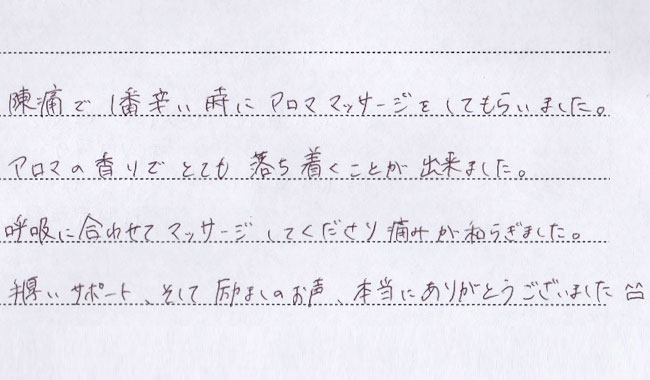 陣痛で1番辛い時にアロママッサージをしてもらいました。
アロマの香りでとても落ち着くことが出来ました。
呼吸に合わせてマッサージしてくださり痛みが和らぎました。
手厚いサポート、そして励ましのお声、本当にありがとうございました